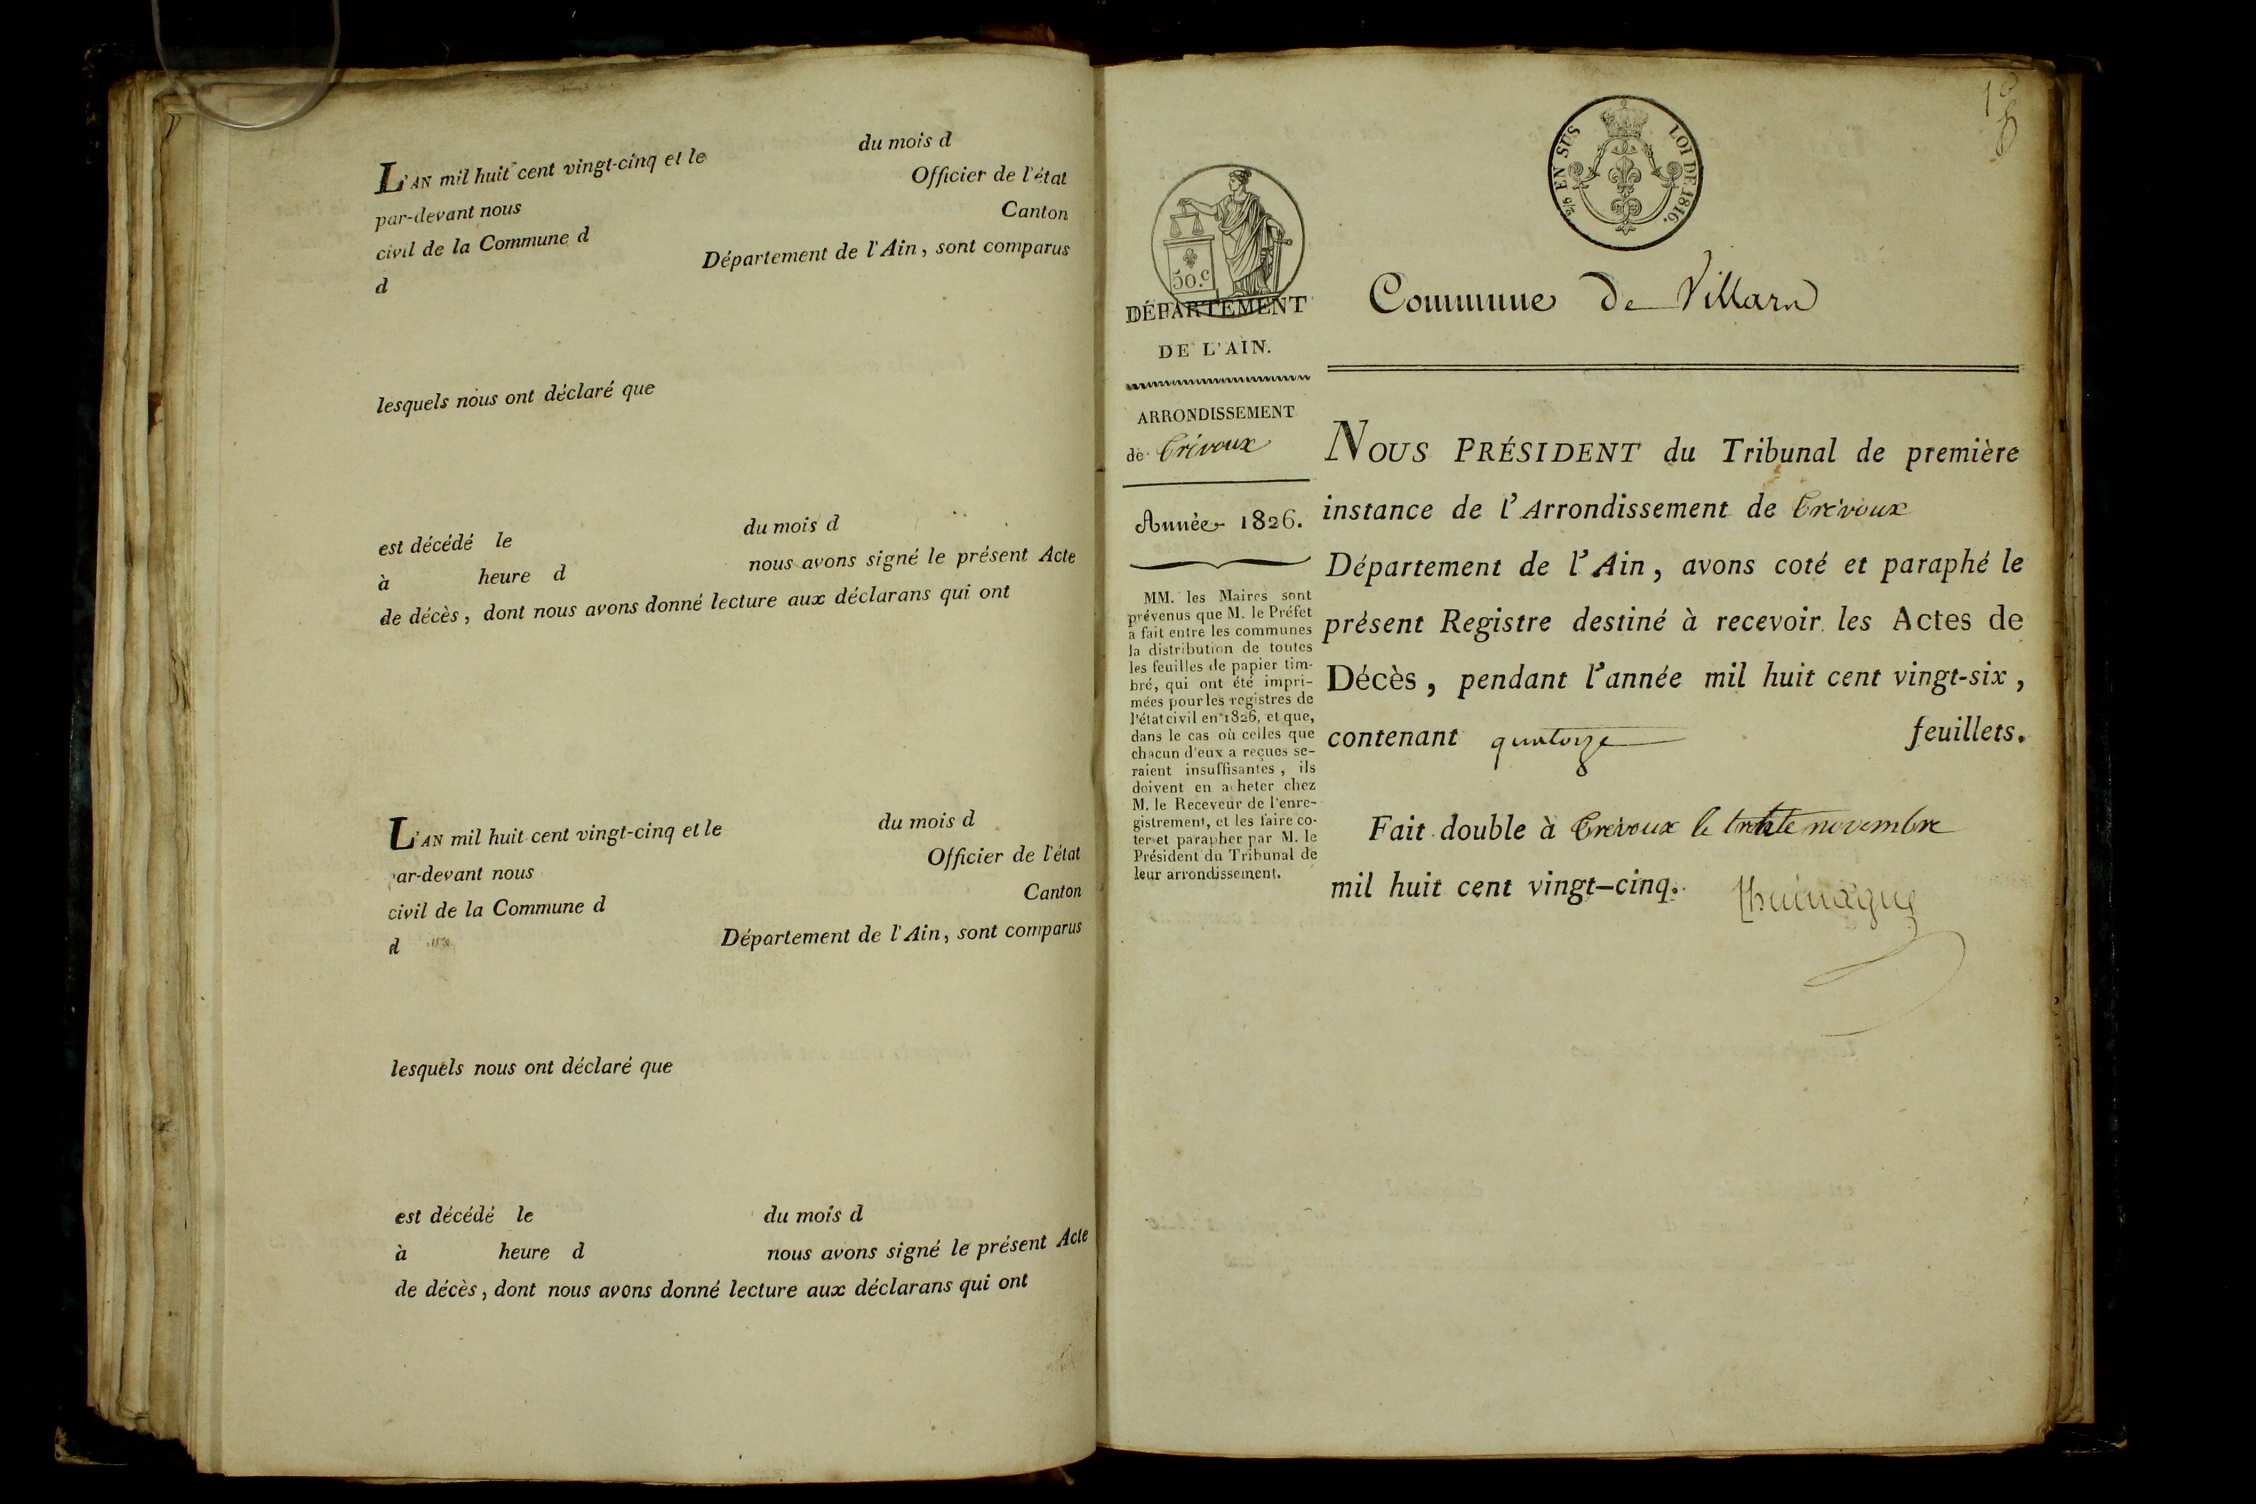 L'AN mil huit cent vingt-cinq et le du mois d
par-devant nous Officier de l'état
civil de la Commune d Canton
d Département de l'Ain, sont comparus
lesquels nous ont déclaré que
est décédé le du mois d
à heure d nous avons signé le présent Acte
de décès, dont nous avons donné lecture aux déclarans qui ont
L'AN mil huit cent vingt-cinq et le du mois d
ar-devant nous Officier de l'état
civil de la Commune d Canton
d Département de l'Ain, sont comparus
lesquels nous ont déclaré que
est décédé le du mois d
à heure d nous avons signé le présent Acte
de décès, dont nous avons donné lecture aux déclarans qui ont
EN SUS LOI DE 1816.
50.c
DÉPARTEMENT
DE L'AIN.
ARRONDISSEMENT
de Trévoux
Année 1826.
MM. les Maires sont
prévenus que M. le Préfet
a fait entre les communes
la distribution de toutes
les feuilles de papier tim-
bré, qui ont été impri-
mées pour les registres de
l'état civil en 1826, et que,
dans le cas où celles que
chacun d'eux a reçues se-
raient insuffisantes, ils
doivent en acheter chez
M. le Receveur de l'enre-
gistrement, et les faire co-
ter et parapher par M. le
Président du Tribunal de
leur arrondissement.
Commune de Villars
NOUS PRÉSIDENT du Tribunal de première
instance de l'Arrondissement de Trévoux
Département de l'Ain, avons coté et paraphé le
présent Registre destiné à recevoir les Actes de
Décès, pendant l'année mil huit cent vingt-six,
contenant quatorze feuillets.
Fait double à Trévoux le trente novembre
mil huit cent vingt-cinq.